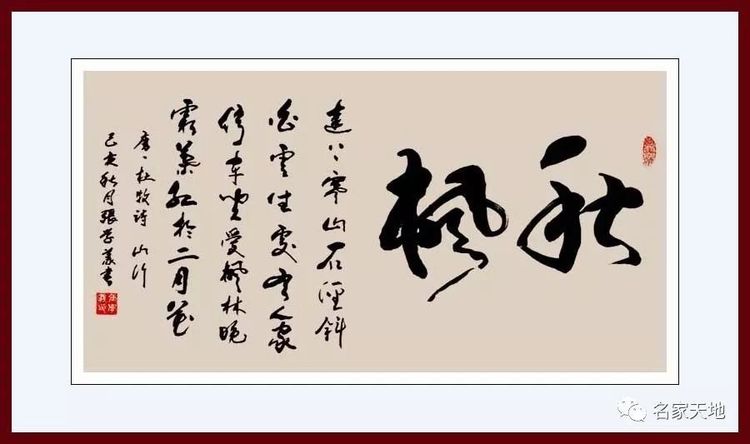 秋枫
远上寒山石径斜
白雲生處有人家
停车坐爱枫林晚
霜葉红於二月花
唐、杜牧诗 山行
己亥秋月張学義書
名家天地